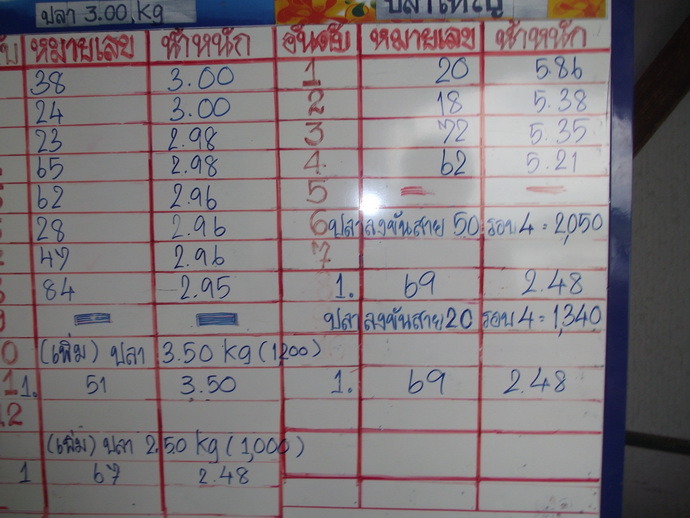 ปลา 3.00 kg
ปลาใหญ่
หมายเลข น้ำหนัก อันดับ หมายเลข น้ำหนัก
38 3.00 1 20 5.86
24 3.00 2 18 5.38
23 2.98 3 72 5.35
65 2.98 4 62 5.21
62 2.96 5
28 2.96 6 ปลาลงขันสาย 50 รอบ 4 = 2,050
47 2.96 7
84 2.95 1. 69 2.48
ปลาลงขันสาย 20 รอบ 4 = 1,340
0 (เพิ่ม) ปลา 3.50 kg (1,200)
1 1. 51 3.50 1. 69 2.48
12
(เพิ่ม) ปลา 2.50 kg (1,000)
1 67 2.48